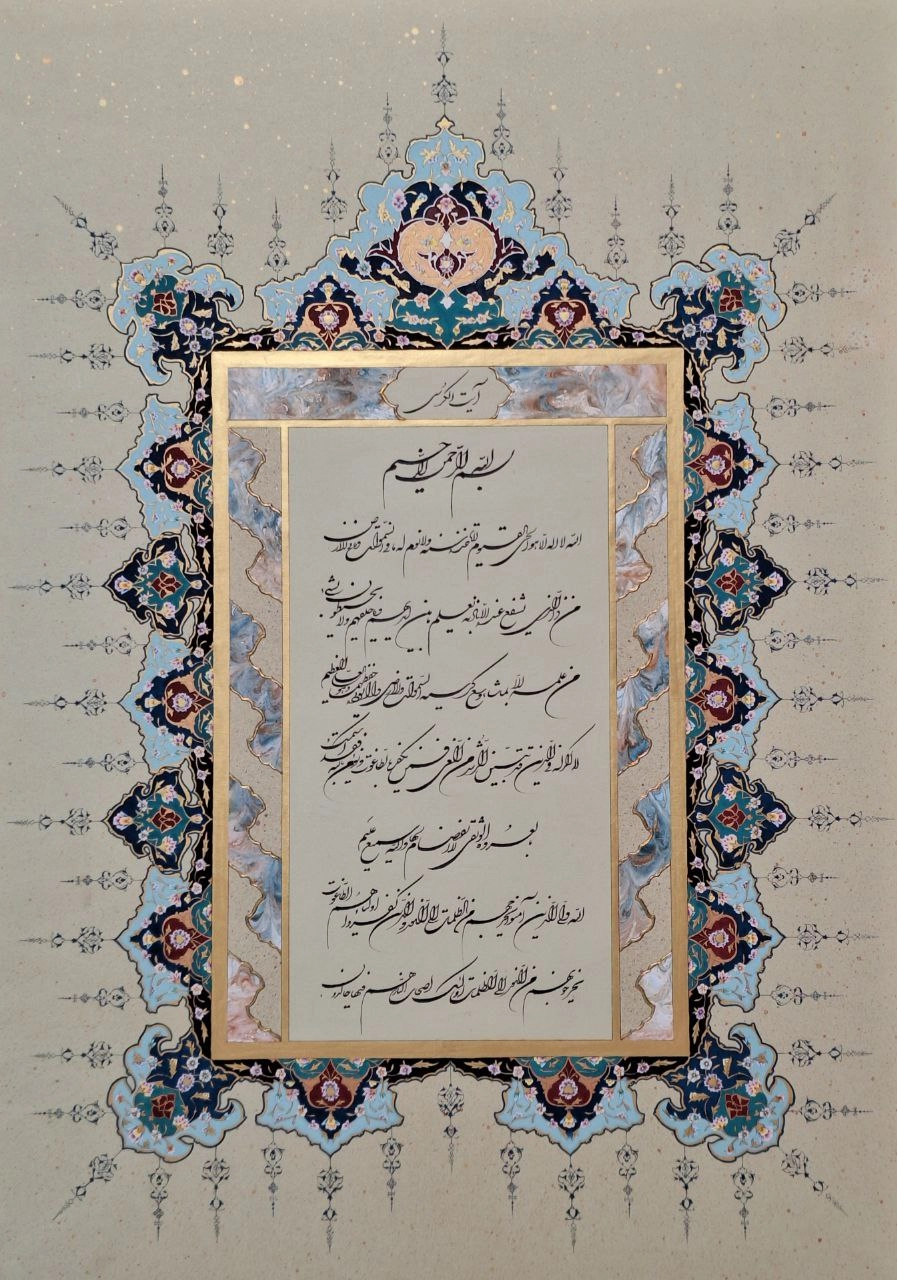 آیت الکرسی
بسم الله الرحمن الرحیم
الله لا اله الا هو الحی القیوم لا تاخذه سنة ولا نوم له ما فی السموات وما فی الارض
من ذا الذی یشفع عنده الا باذنه یعلم ما بین ایدیهم وما خلفهم ولا یحیطون بشیء
من علمه الا بما شاء وسع کرسیه السموات والارض ولا یؤده حفظهما وهو العلی العظیم
لا اکراه فی الدین قد تبین الرشد من الغی فمن یکفر بالطاغوت ویؤمن بالله فقد استمسک
بالعروة الوثقی لا انفصام لها والله سمیع علیم
الله ولی الذین آمنوا یخرجهم من الظلمات الی النور والذین کفروا اولیاؤهم الطاغوت
یخرجونهم من النور الی الظلمات اولئک اصحاب النار هم فیها خالدون